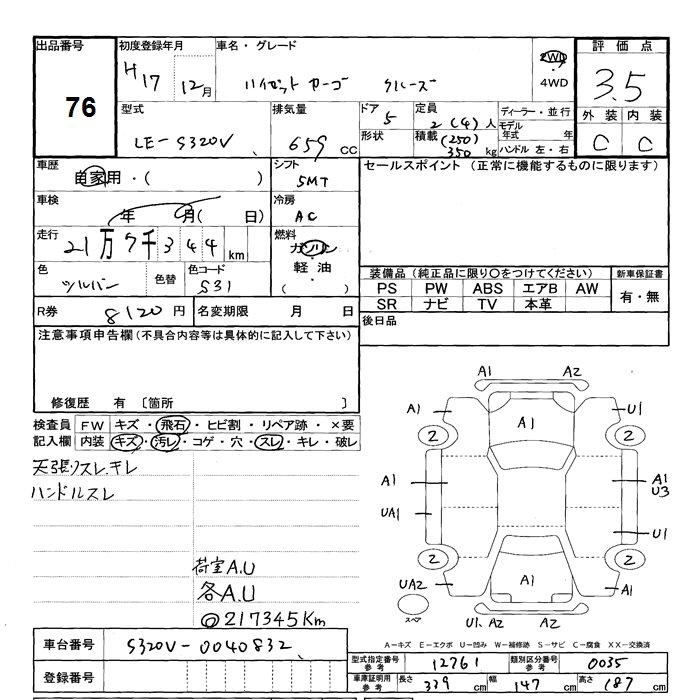 出品番号
76
初度登録年月
H17年 12月
車名・グレード
ハイゼット カーゴ クルーズ
2WD
4WD
評価点
3.5
外装 内装
C C
型式
LE-S320V
排気量
659 cc
ドア 5
形状
定員 2(4)人
積載 (250) 350 kg
ディーラー・並行
モデル年式 年
ハンドル 左・右
車歴
自家用・( )
シフト
5MT
セールスポイント (正常に機能するものに限ります)
車検
年 月( 日)
冷房
AC
走行
21万7千344km
燃料
ガソリン
軽・油
( )
色
シルバー
色替
色コード
S31
装備品 (純正品に限り○をつけてください)
新車保証書
PS PW ABS エアB AW
SR ナビ TV 本革
有・無
R券 8120円
名変期限 月 日
後日品
注意事項申告欄(不具合内容等は具体的に記入して下さい)
修復歴 有 〔箇所 〕
検査員記入欄
FW キズ・飛石・ヒビ割・リペア跡・×要
内装 キズ・汚レ・コゲ・穴・スレ・キレ・破レ
天張リスレ.キレ
ハンドルスレ
荷室A.U
各A.U
◎217345Km
A1 A2
A1 A1 U1
2 2
A1 A1
U3
UA1 U1
2 2
UA2 A1 A1
スペア
U1. A2 A2
A-キズ E-エクボ U-凹み W-補修跡 S-サビ C-腐食 XX-交換済
車台番号 S320V-0040832
登録番号
型式指定番号参考 12761
類別区分番号参考 0035
車庫証明用参考 長さ 339 cm 幅 147 cm 高さ 187 cm